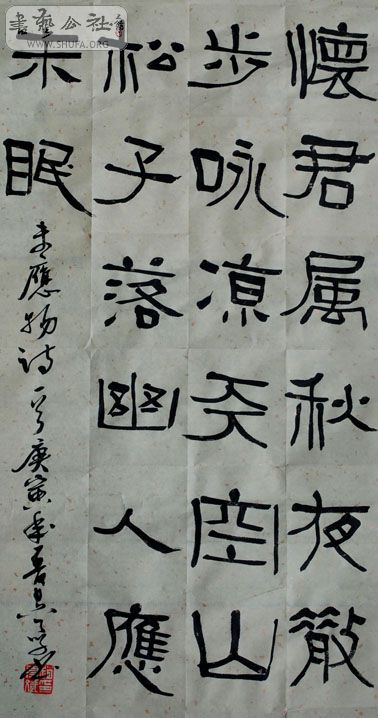 懷君属秋夜散
步咏凉天空山
松子落幽人應
未眠
韦應物诗一首庚寅年
書藝公社
WWW.SHUFA.ORG